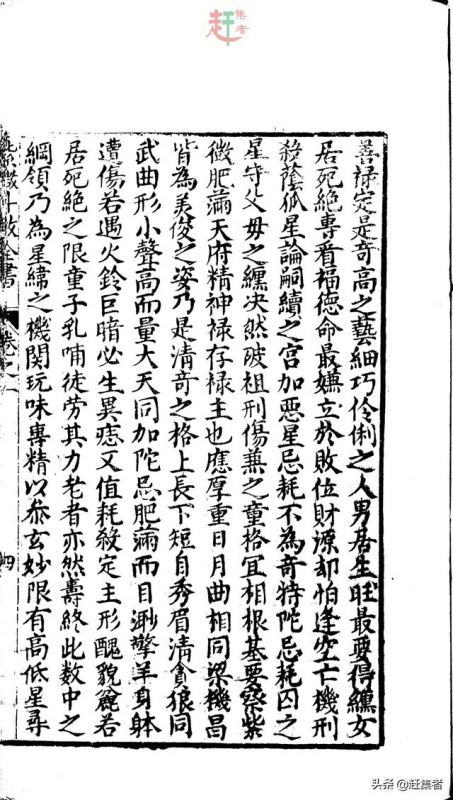 集者
赶
善祿定是奇高之藝細巧伶俐之人男居生旺最要得纏女
居死絕專看福德命最嫌立於敗位財源却怕逢空亡機刑
殺蔭孤星論嗣續之宮加惡星忌耗不為奇特陀忌耗囚之
星守父母之纏决然破祖刑傷兼之童格宜相根基要察紫
微肥滿天府精神禄存禄主也應厚重日月曲相同梁機昌
皆為美俊之姿乃是清奇之格上長下短目秀眉清貪狼同
武曲形小聲高而量大天同加陀忌肥滿而目渺擎羊身体
遭傷若遇火鈴巨暗必生異痣又值耗殺定主形醜貌麄若
居死絕之限童子乳哺徒劳其力老者亦然壽終此數中之
綱領乃為星緯之機関玩味專精以叅玄妙限有高低星尋
微斗数全書 卷之一 四
头条 @赶集者